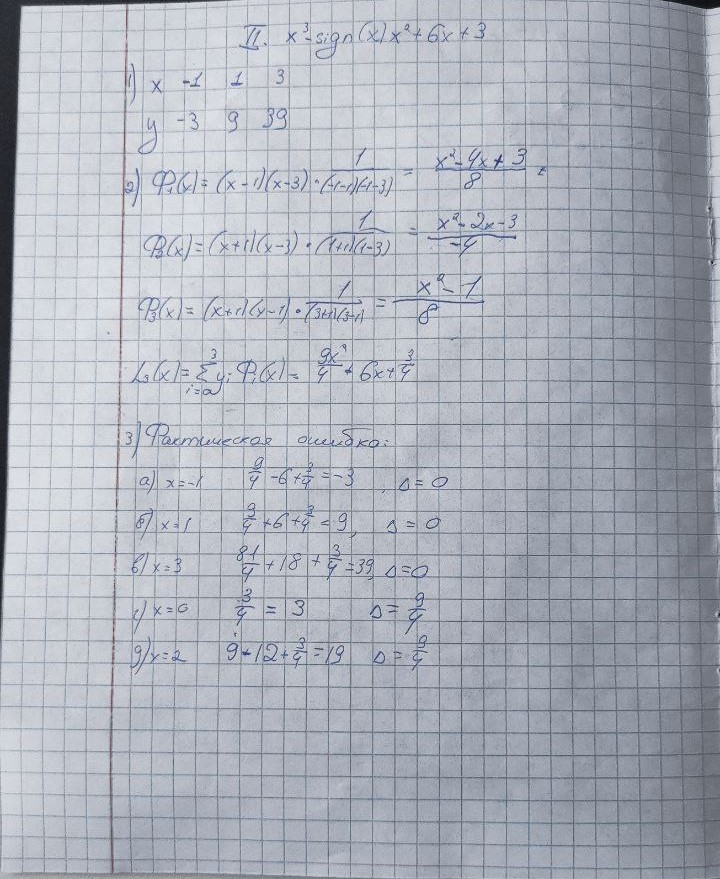 II. x³-sign(x)x²+6x+3
1) x -1 1 3
y -3 9 39
2) Φ₁(x)=(x-1)(x-3)·1/((-1-1)(-1-3)) = (x²-4x+3)/8
Φ₂(x)=(x+1)(x-3)·1/((1+1)(1-3)) = (x²-2x-3)/-4
Φ₃(x)=(x+1)(x-1)·1/((3+1)(3-1)) = (x²-1)/8
L₃(x)=∑yᵢΦᵢ(x)= 9x²/4+6x+3/4
3) Фактическая ошибка:
а) x=-1 9/4-6+3/4=-3, Δ=0
б) x=1 9/4+6+3/4=9, Δ=0
в) x=3 81/4+18+3/4=39, Δ=0
г) x=0 3/4=3 Δ=9/4
д) x=2 9+12+3/4=19 Δ=9/4